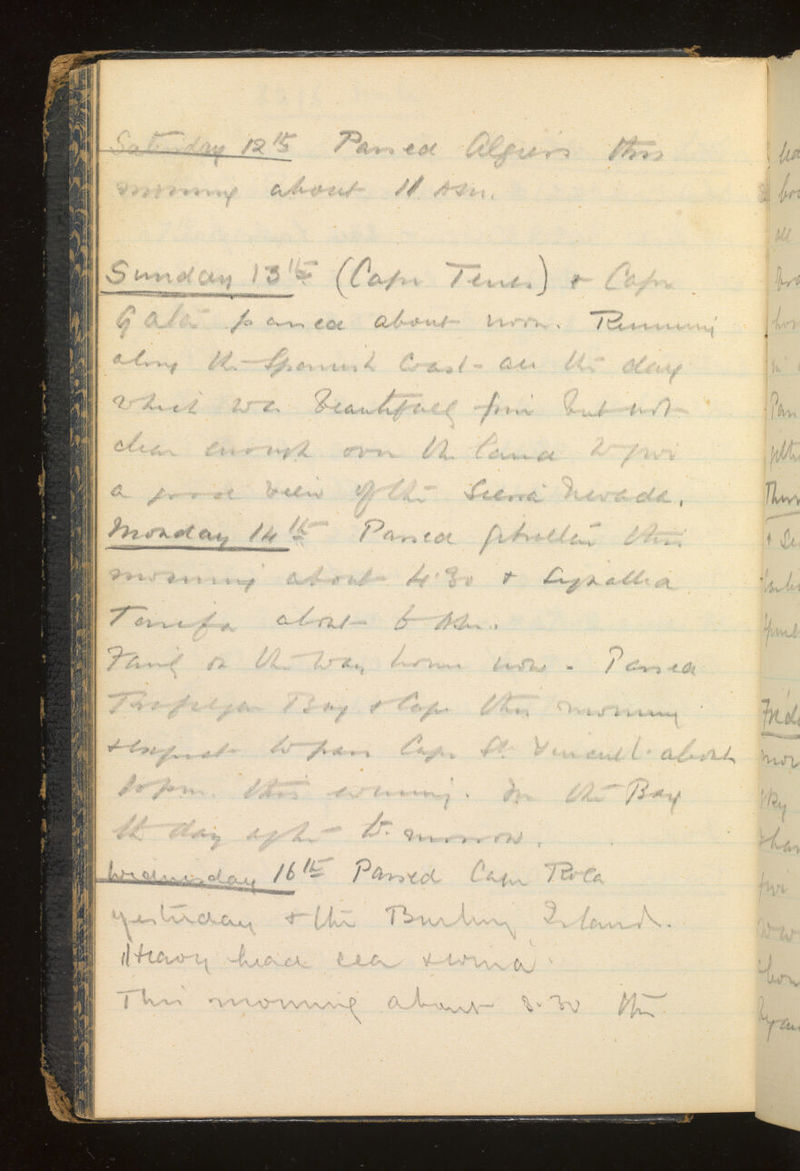 Saturday 12th Passed Algiers this
morning about 11 AM.
Sunday 13th (Cape Tenes) & Cape
Gata passed about noon. Running
along the Spanish Coast all the day
which was beautifully fine but not
clear enough over the land to give
a good view of the Sierra Nevada.
Monday 14th Passed Gibraltar this
morning about 4.30 & signalled
Tarifa about 6 AM.
Fairly on the way home now. Passed
Trafalgar Bay & Cape this morning
& expect to pass Cape St. Vincent about
10 pm. this evening. In the Bay
the day after to-morrow.
Wednesday 16th Passed Cape Roca
yesterday & the Burling Island.
Heavy head sea & wind.
This morning about 8.30 the
Thurs
Frid